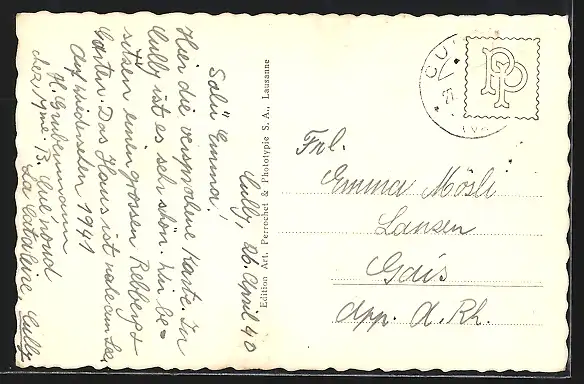 Cully, 26. April 40
Salü Emma!
Hier die versprochene Karte. In
Cully ist es seh schön. Wir be-
sitzen einen grossen Rebberg &
Garten. Das Haus ist nahe am See.
Auf Wiedersehen 1941
H. Grubenmann
chez, Mme. B.
La Cully
Edition Art. Perrochet & Phototypie S. A., Lausanne
CU
PP
Frl.
Emma Mösli
Lansen
Gais
App. A. Rh.